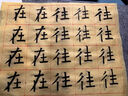 在在往往往
在在往往往
在在往往往
在在往往往